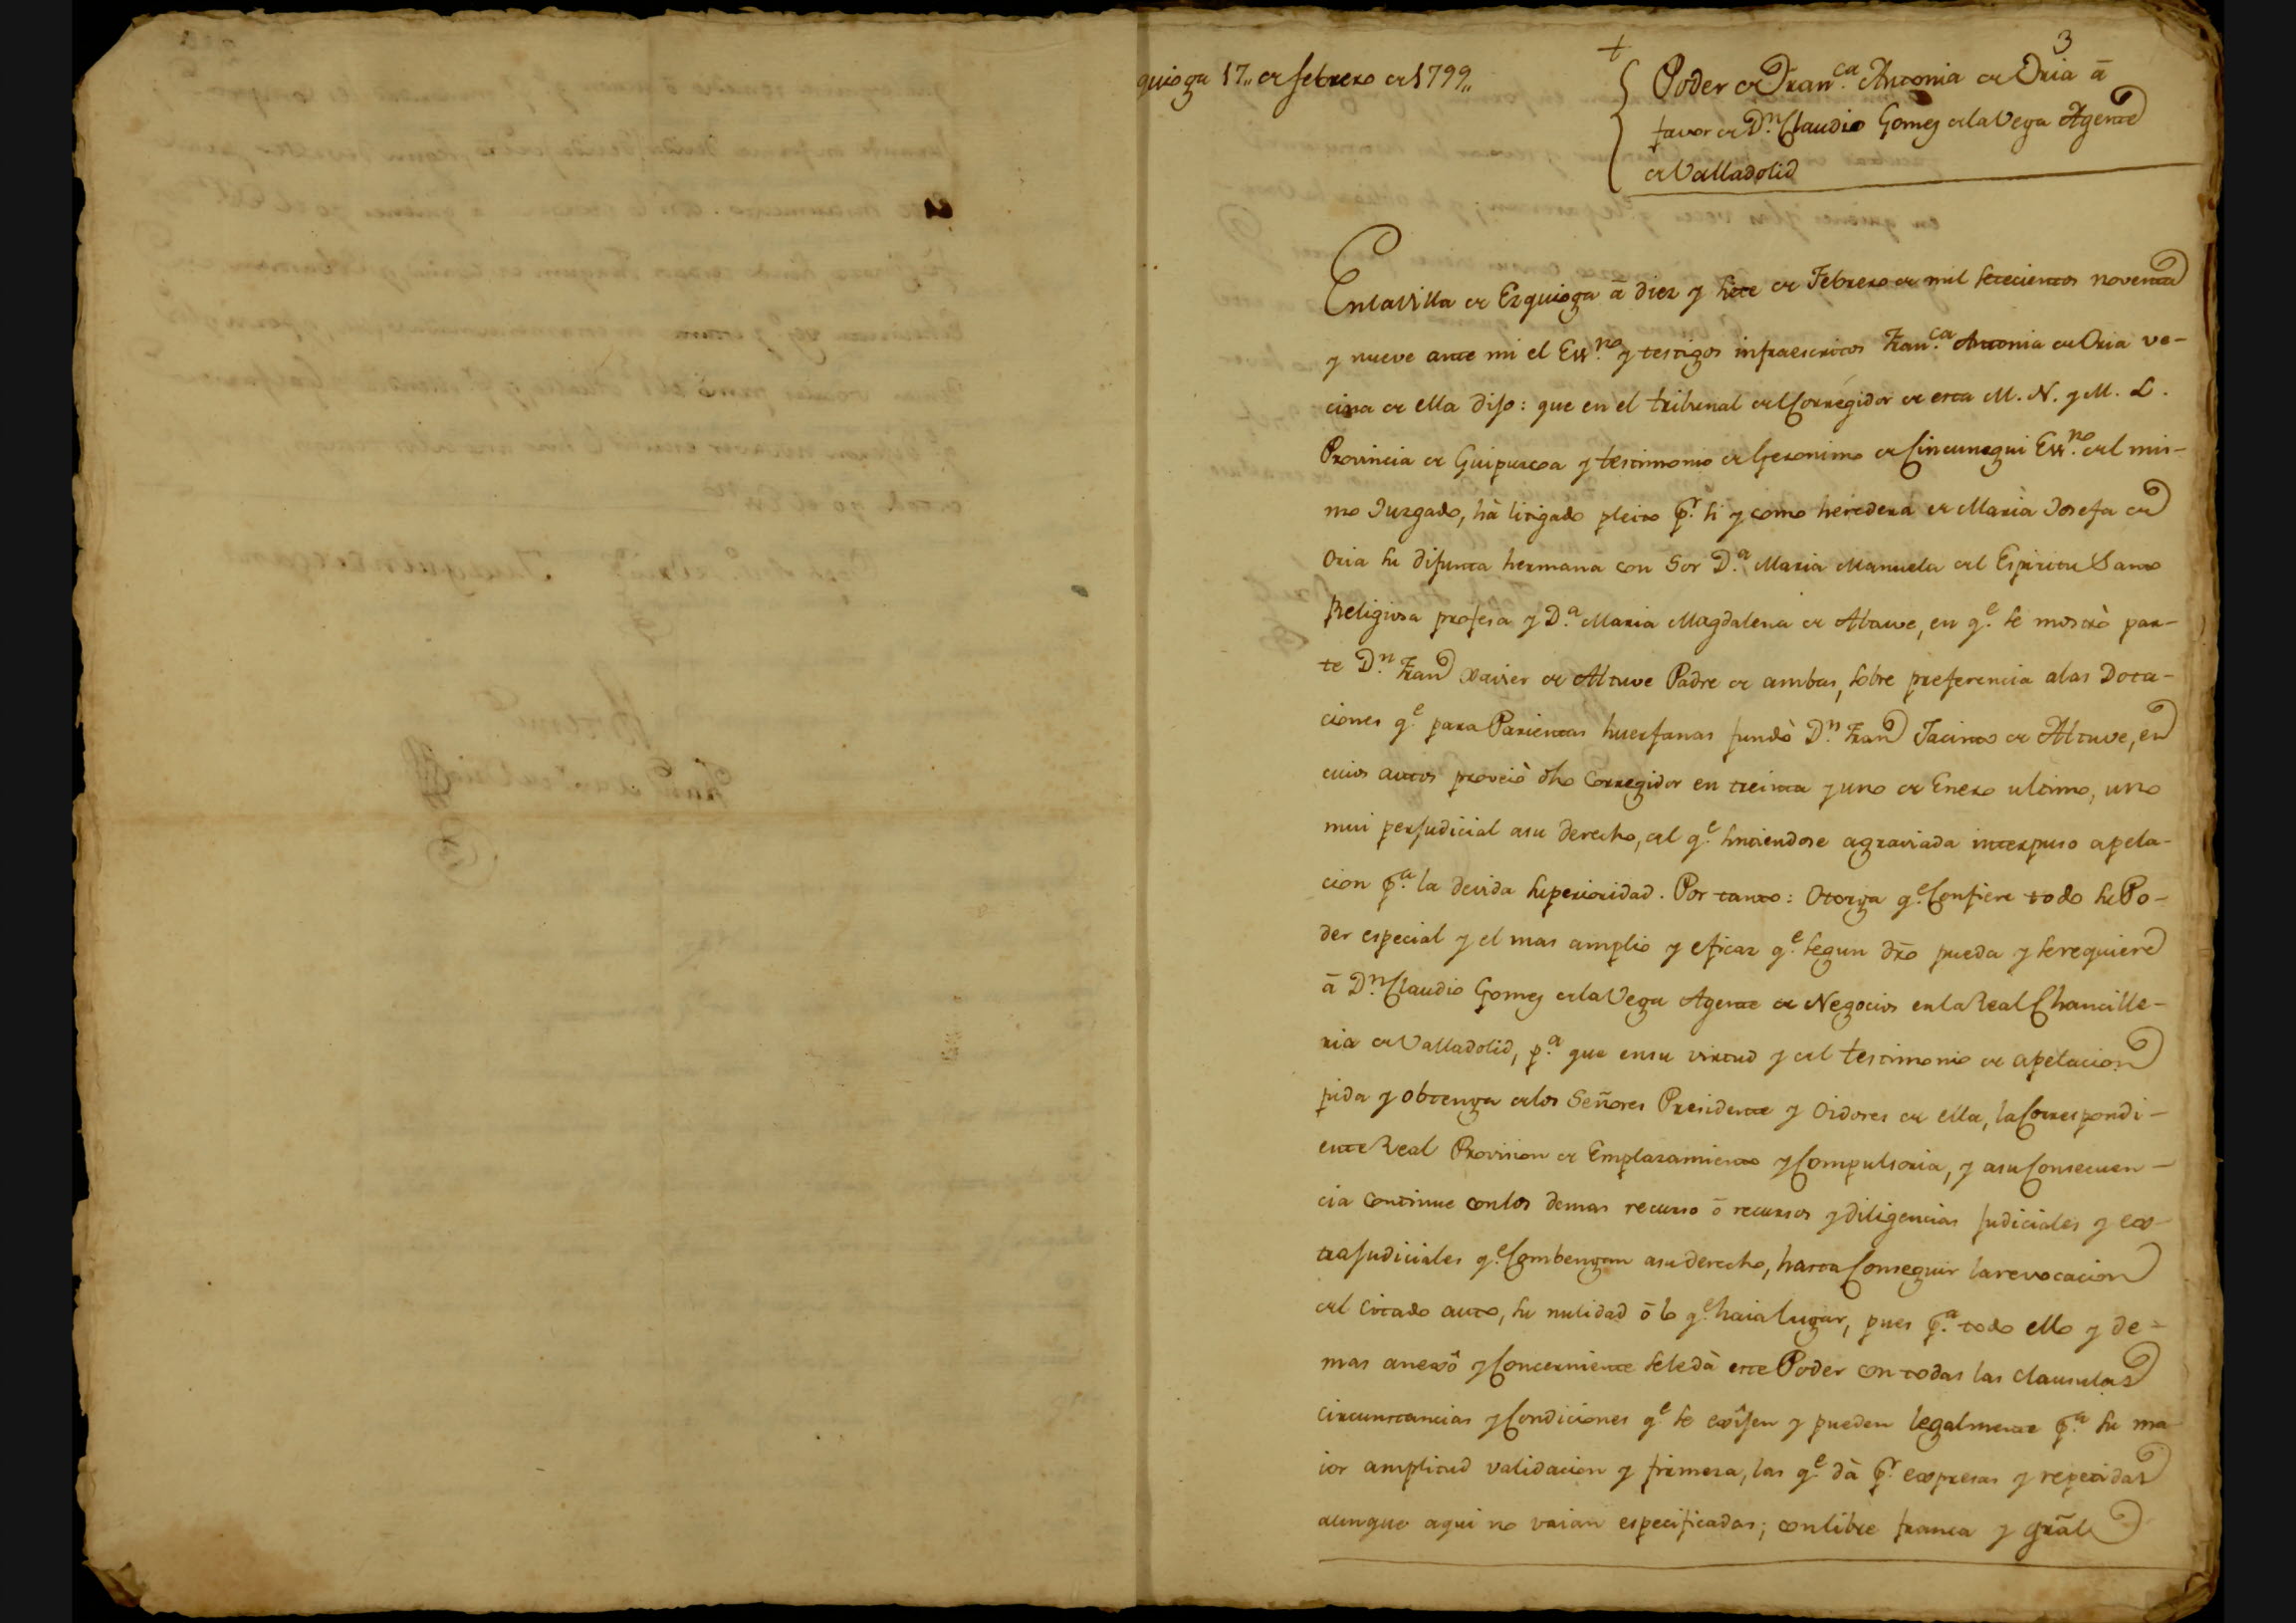 3
quioga 17,, de febrero de 1799,,
Poder de Fran.ca Antonia de Oria â
favor de D.n Claudio Gomez de la Vega Agente
de Valladolid
En la Villa de Ezquioga â diez y siete de Febrero de mil setecientos noventa
y nueve ante mi el Ess.no y testigos infraescritos Fran.ca Antonia de Oria ve-
cina de ella dijo: que en el tribunal del Corregidor de esta M. N. y M. L.
Provincia de Guipuzcoa y testimonio de Geronimo de Cincunegui Ess.no del mis-
mo Juzgado, hà litigado pleito p.r si y como heredera de Maria Josefa de
Oria su difunta hermana con Sor D.a Maria Manuela del Espiritu Santo
Religiosa profesa y D.a Maria Magdalena de Altuve, en q.e se mostrò par-
te D.n Fran Xavier de Altuve Padre de ambas, sobre preferencia a las Dota-
ciones q.e para Parientas huerfanas fundò D.n Fran Jacinto de Altuve, en
cuios autos proveiò dho Corregidor en treinta y uno de Enero ultimo, uno
mui perjudicial a su derecho, del q.e sintiendose agraviada interpuso apela-
cion p.a la devida superioridad. Por tanto: Otorga q.e Confiere todo su Po-
der especial y el mas amplio y eficaz q.e segun dro pueda y se requiere
â D.n Claudio Gomez de la Vega Agente de Negocios en la Real Chancille-
ria de Valladolid, p.a que en su virtud y del testimonio de apelacion
pida y obtenga de los Señores Presidente y Oidores de ella, la Correspondi-
ente Real Provision de Emplazamiento y Compulsoria, y a su Consecuen-
cia continue con los demas recurso ô recursos y diligencias judiciales y ex-
trajudiciales q.e Combengan a su derecho, hasta Conseguir la revocacion
del citado auto, su nulidad ô lo q.e haia lugar, pues p.a todo ello y de=
mas anexô y Concerniente se le dà este Poder con todas las clausulas
circunstancias y Condiciones q.e se exîjen y pueden legalmente p.a su ma
ior amplitud validacion y firmeza, las q.e dà p.r expresas y repetidas
aunque aqui no vaian especificadas; con libre franca y grâl